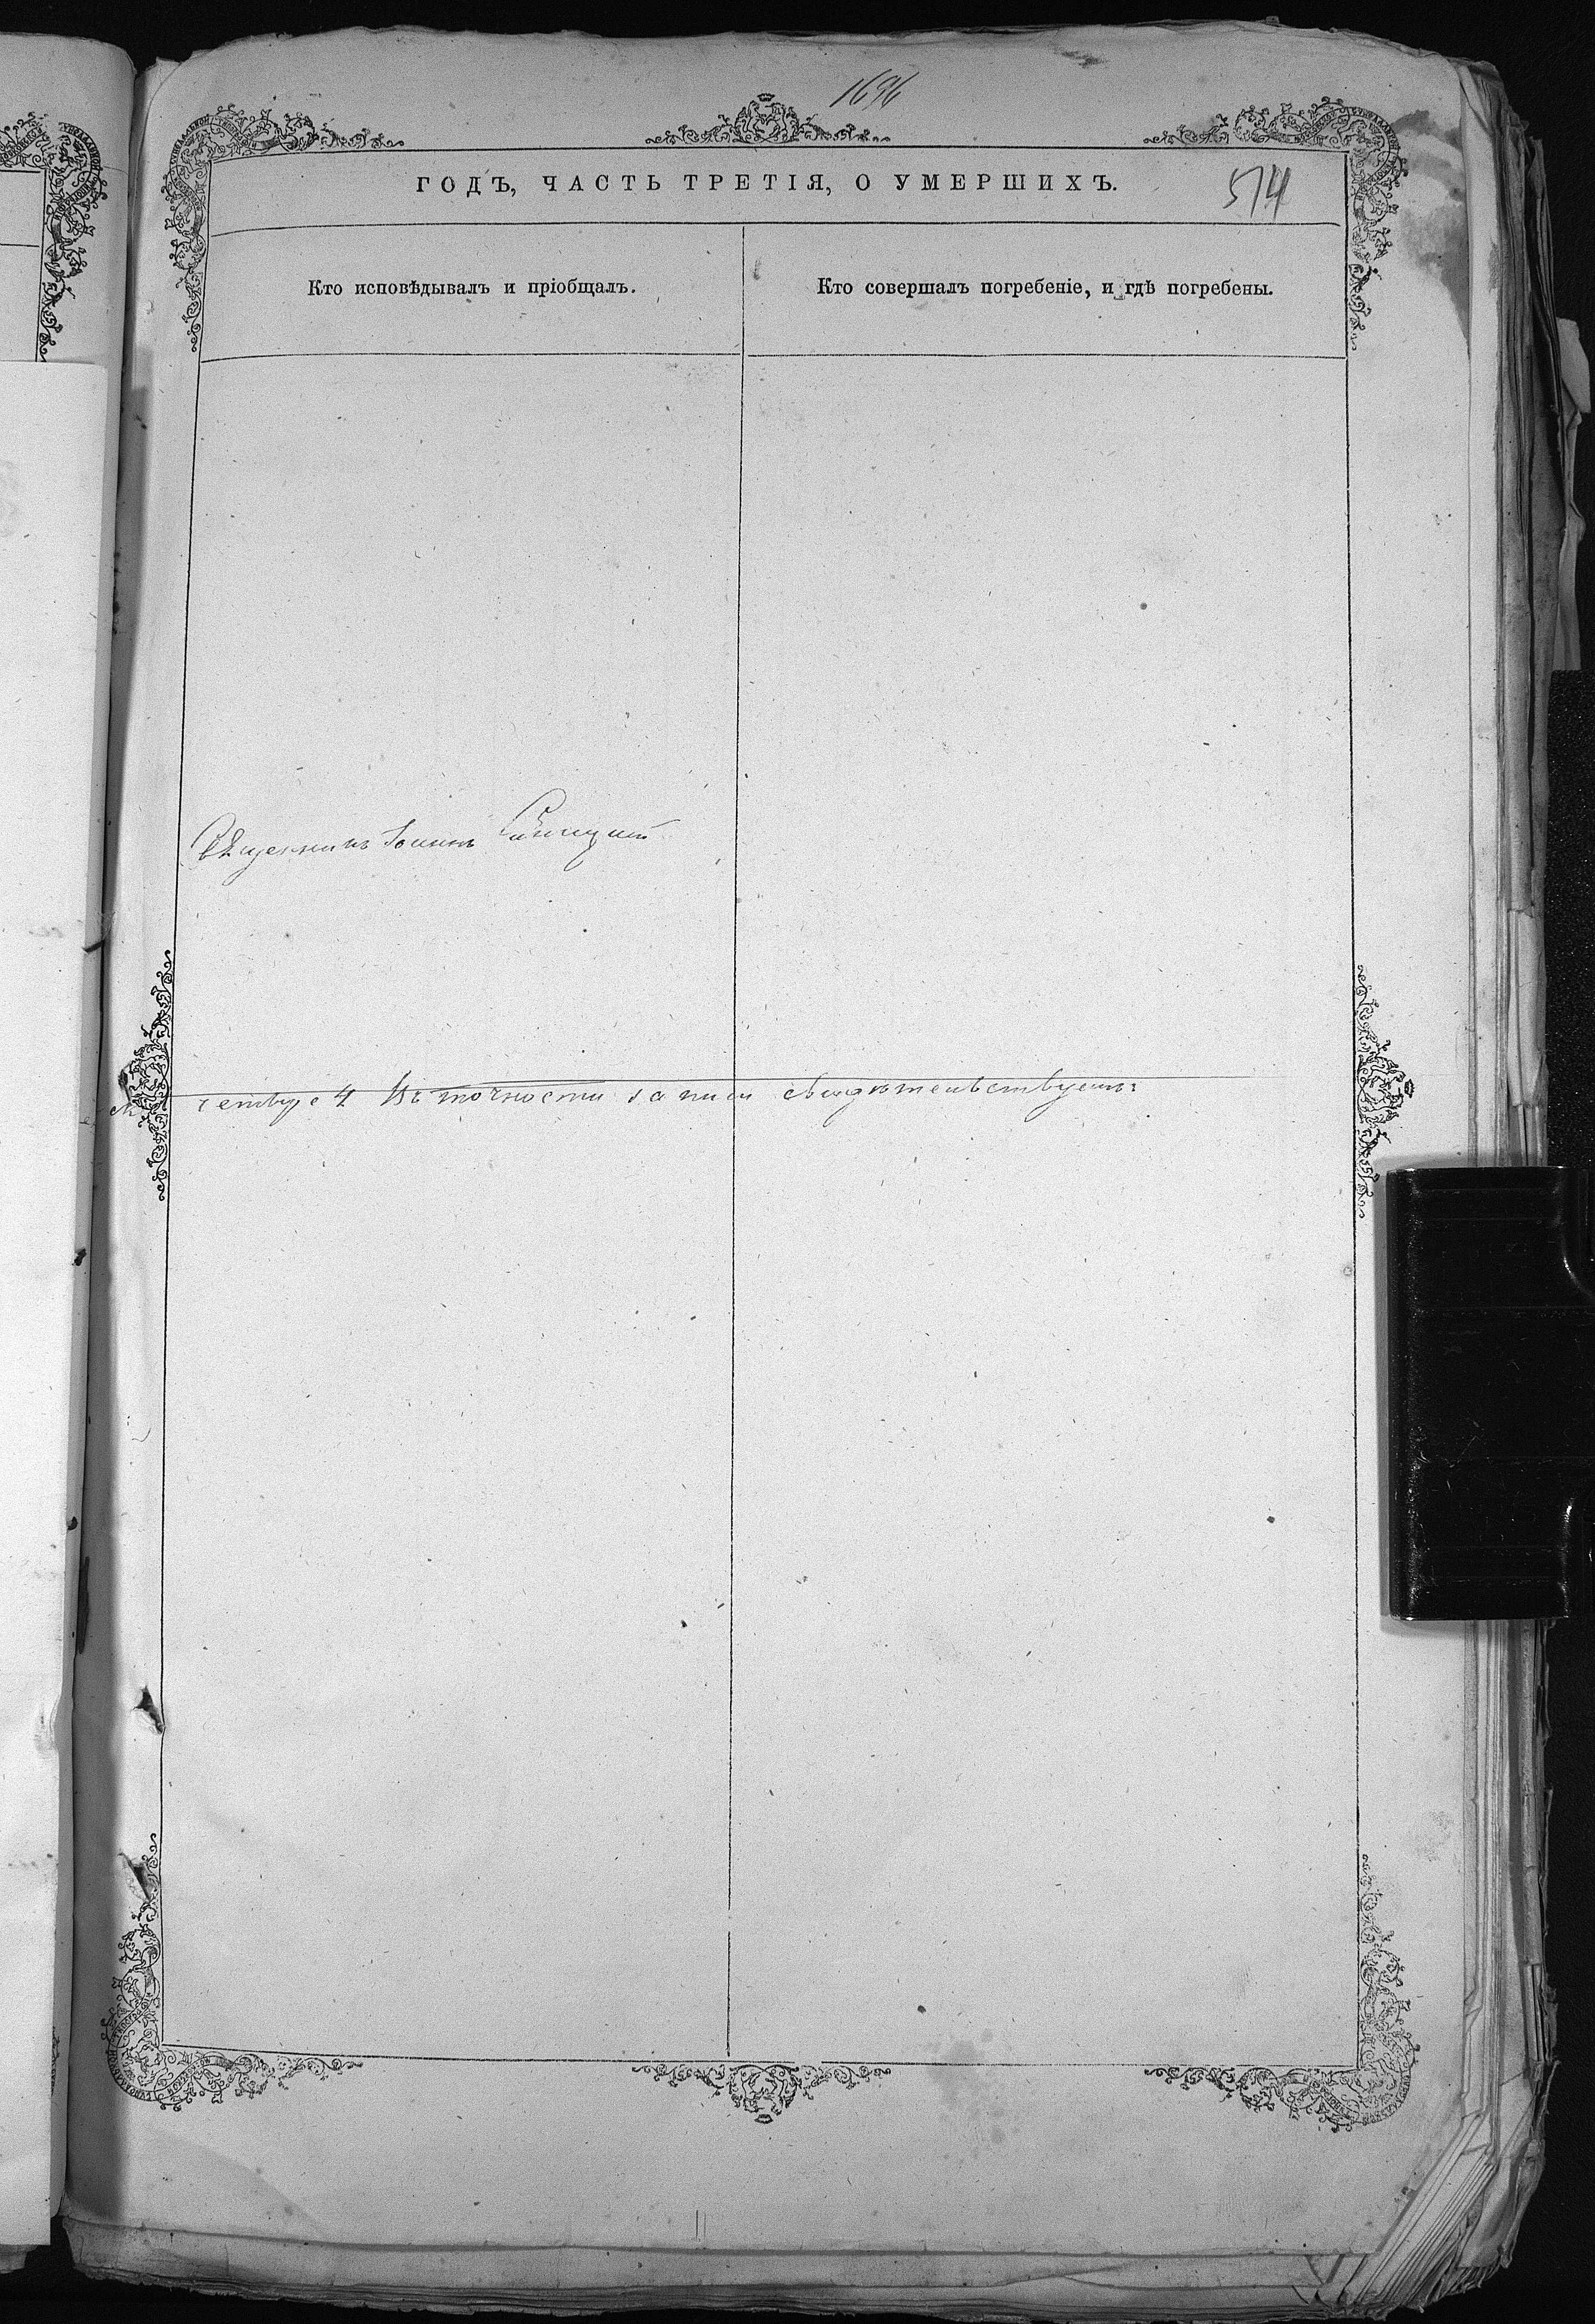 1696
ГОДЪ, ЧАСТЬ ТРЕТІЯ, О УМЕРШИХЪ.
514
Кто исповѣдывалъ и пріобщалъ.
Кто совершалъ погребеніе, и гдѣ погребены.
Священникъ Іоаннъ
4 Въ точности записи свидѣтельствуемъ: